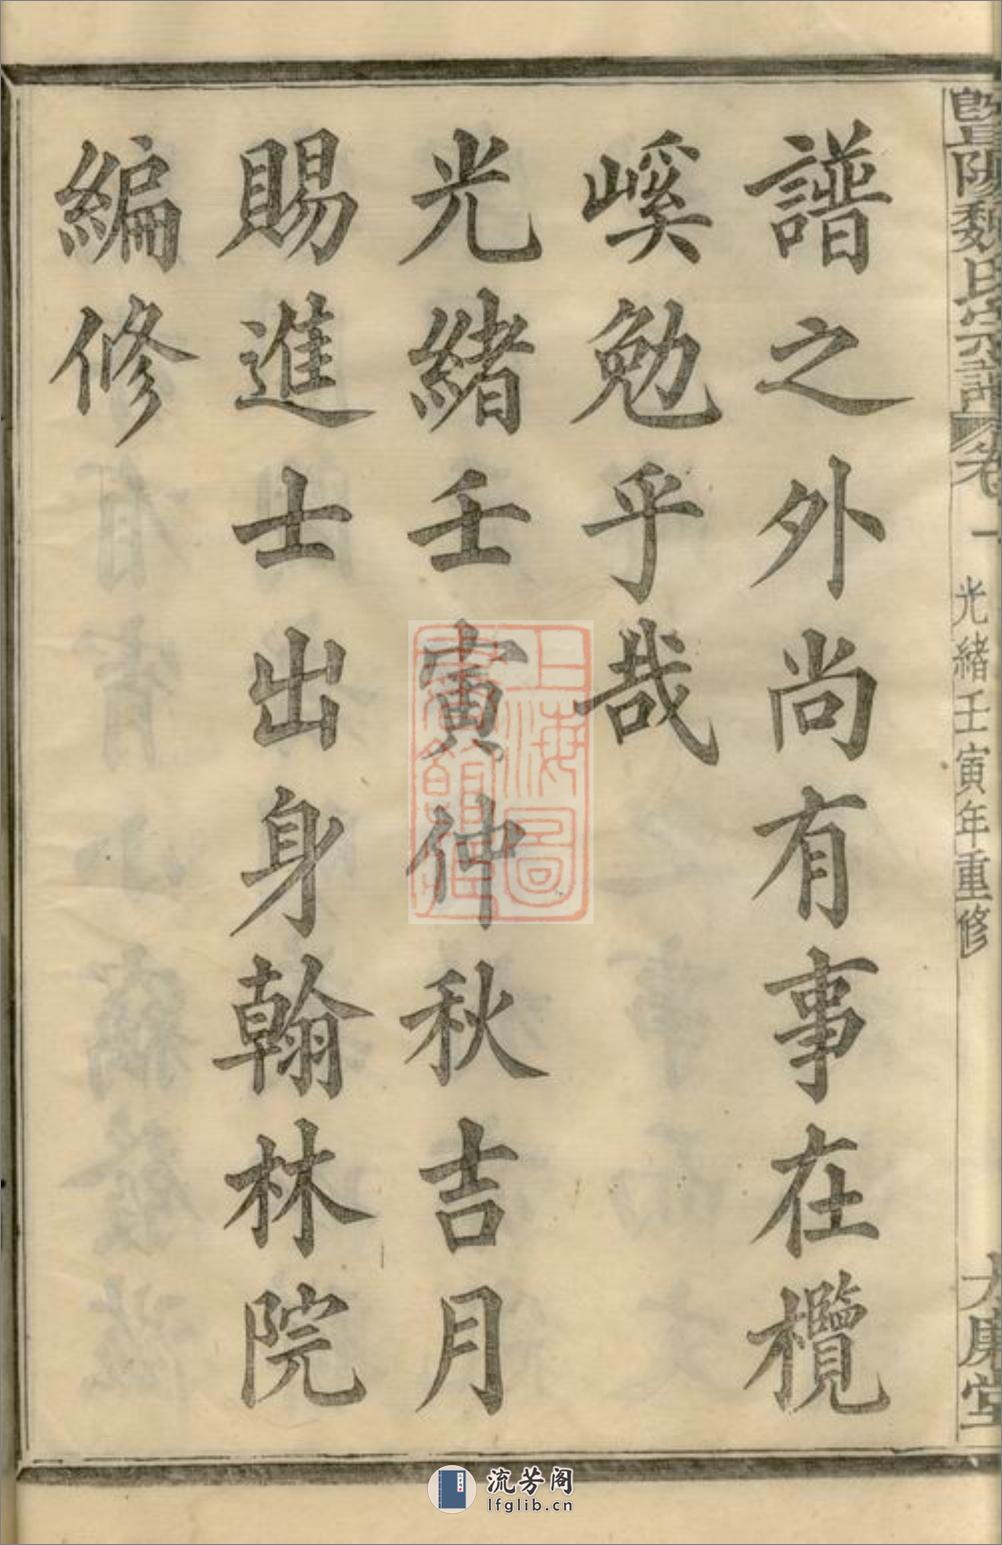 暨陽魏氏宗譜 卷一 光緒壬寅年重修
譜之外尚有事在欖
嵠勉乎哉
光緒壬寅仲秋吉月
賜進士出身翰林院
編修
上海圖
流芳阁
lfglib.cn